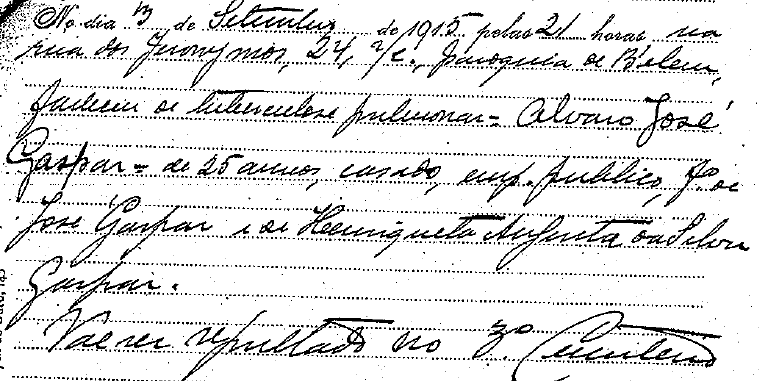 No dia 3 de Setembro de 1915 pelas 21 horas na
rua dos Jeronymos, 24, r/c., paroquia de Belem,
faleceu de tuberculose pulmonar = Alvaro José
Gaspar = de 25 annos, casado, emp. publico, fº de
José Gaspar e de Henriqueta Augusta da Silva
Gaspar.
Vae ser sepultado no 3º Cemiterio